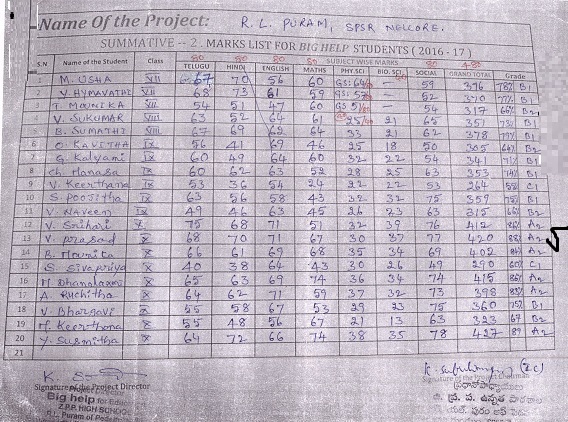 Name Of the Project: R. L. PURAM, SPSR NELLORE.
SUMMATIVE -- 2 . MARKS LIST FOR BIG HELP STUDENTS ( 2016 - 17 )
80 80 80 80 SUBJECT WISE MARKS 80 480
S.N Name of the Student Class TELUGU HINDI ENGLISH MATHS PHY.SCI BIO. SCI SOCIAL GRAND TOTAL Grade
1 M. USHA VII 67 70 56 60 GS: 64 — 59 376 78% B1
2 Y. HYMAVATHI VII 68 73 61 59 GS: 57 — 52 370 77% B1
3 T. MOUNIKA VII 54 51 47 60 GS 51 — 54 317 66% B2
4 V. SUKUMAR VIII 63 52 64 61 25 21 65 351 73% B1
5 B. SUMATHI VIII 67 69 62 64 33 21 62 378 79% B1
6 O. KAVITHA IX 56 41 69 46 25 18 50 305 64% B2
7 G. Kalyani IX 60 49 64 60 32 22 54 341 71% B1
8 Ch. Manasa IX 60 62 63 52 28 25 63 353 74% B1
9 V. Keerthana IX 53 36 54 24 22 22 53 264 55% C1
10 S. Poojitha IX 63 56 58 43 32 32 75 359 75% B1
11 V. NAveen IX 49 46 63 45 26 23 63 315 66% B2
12 V. Srihari X 75 68 71 51 32 39 76 412 86% A2
13 V. prasad X 68 70 71 67 30 37 77 420 88% A2
14 B. Mounica X 66 61 69 68 35 34 69 402 84% A2
15 S. Sivapriya X 40 38 64 43 30 26 49 290 60% C1
16 M. Dhanalaxmi X 65 63 69 74 36 34 74 415 86% A2
17 A. Ruchitha X 64 62 71 59 37 32 73 398 83% A2
18 V. Bhargavi X 55 58 67 53 29 23 75 360 75% B1
19 M. Keerthana X 55 48 56 67 21 13 63 323 67 B2
20 Y. Susmitha X 64 72 66 74 38 35 78 427 89 A2
21
Signature of the Project Director
Signature of the
Big help for
Z.P.P. HIGH SCHOOL
Puram